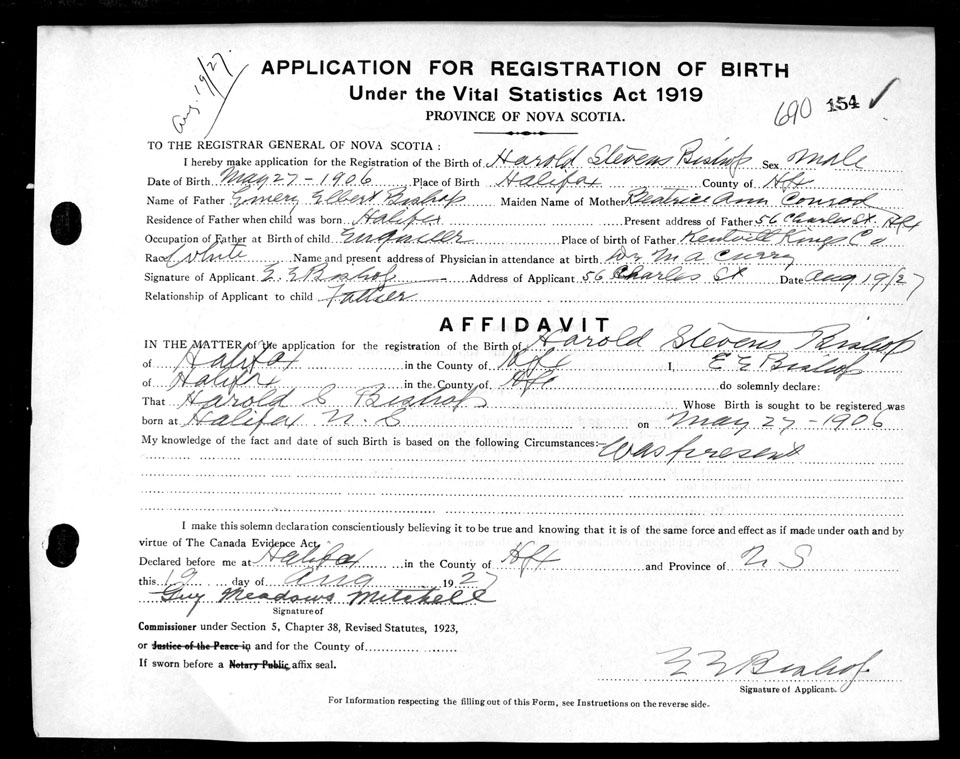 Aug. 19/27.
APPLICATION FOR REGISTRATION OF BIRTH
Under the Vital Statistics Act 1919
PROVINCE OF NOVA SCOTIA.
690 154 ✓
TO THE REGISTRAR GENERAL OF NOVA SCOTIA :
I hereby make application for the Registration of the Birth of Harold Stevens Bishop Sex Male
Date of Birth May 27 - 1906 Place of Birth Halifax County of Hfx
Name of Father Emery Elbert Bishop Maiden Name of Mother Beatrice Ann Conrod
Residence of Father when child was born Halifax Present address of Father 56 Charles St. Hfx
Occupation of Father at Birth of child Engineer Place of birth of Father Kentvill Kings Co
Race White Name and present address of Physician in attendance at birth Dr M A Curry
Signature of Applicant E. E Bishop Address of Applicant 56 Charles St Date Aug 19/27
Relationship of Applicant to child Father
AFFIDAVIT
IN THE MATTER of the application for the registration of the Birth of Harold Stevens Bishop
of Halifax in the County of Hfx I, E E Bishop
of Halifax in the County of Hfx do solemnly declare:
That Harold S Bishop Whose Birth is sought to be registered was
born at Halifax N. S on May 27 - 1906
My knowledge of the fact and date of such Birth is based on the following Circumstances:— Was present
I make this solemn declaration conscientiously believing it to be true and knowing that it is of the same force and effect as if made under oath and by
virtue of The Canada Evidence Act.
Declared before me at Halifax in the County of Hfx and Province of N S
this 19 day of Aug 1927
Guy Meadows Mitchell
Signature of
Commissioner under Section 5, Chapter 38, Revised Statutes, 1923,
or Justice of the Peace in and for the County of
If sworn before a Notary Public, affix seal.
E E Bishop
Signature of Applicant.
For Information respecting the filling out of this Form, see Instructions on the reverse side.